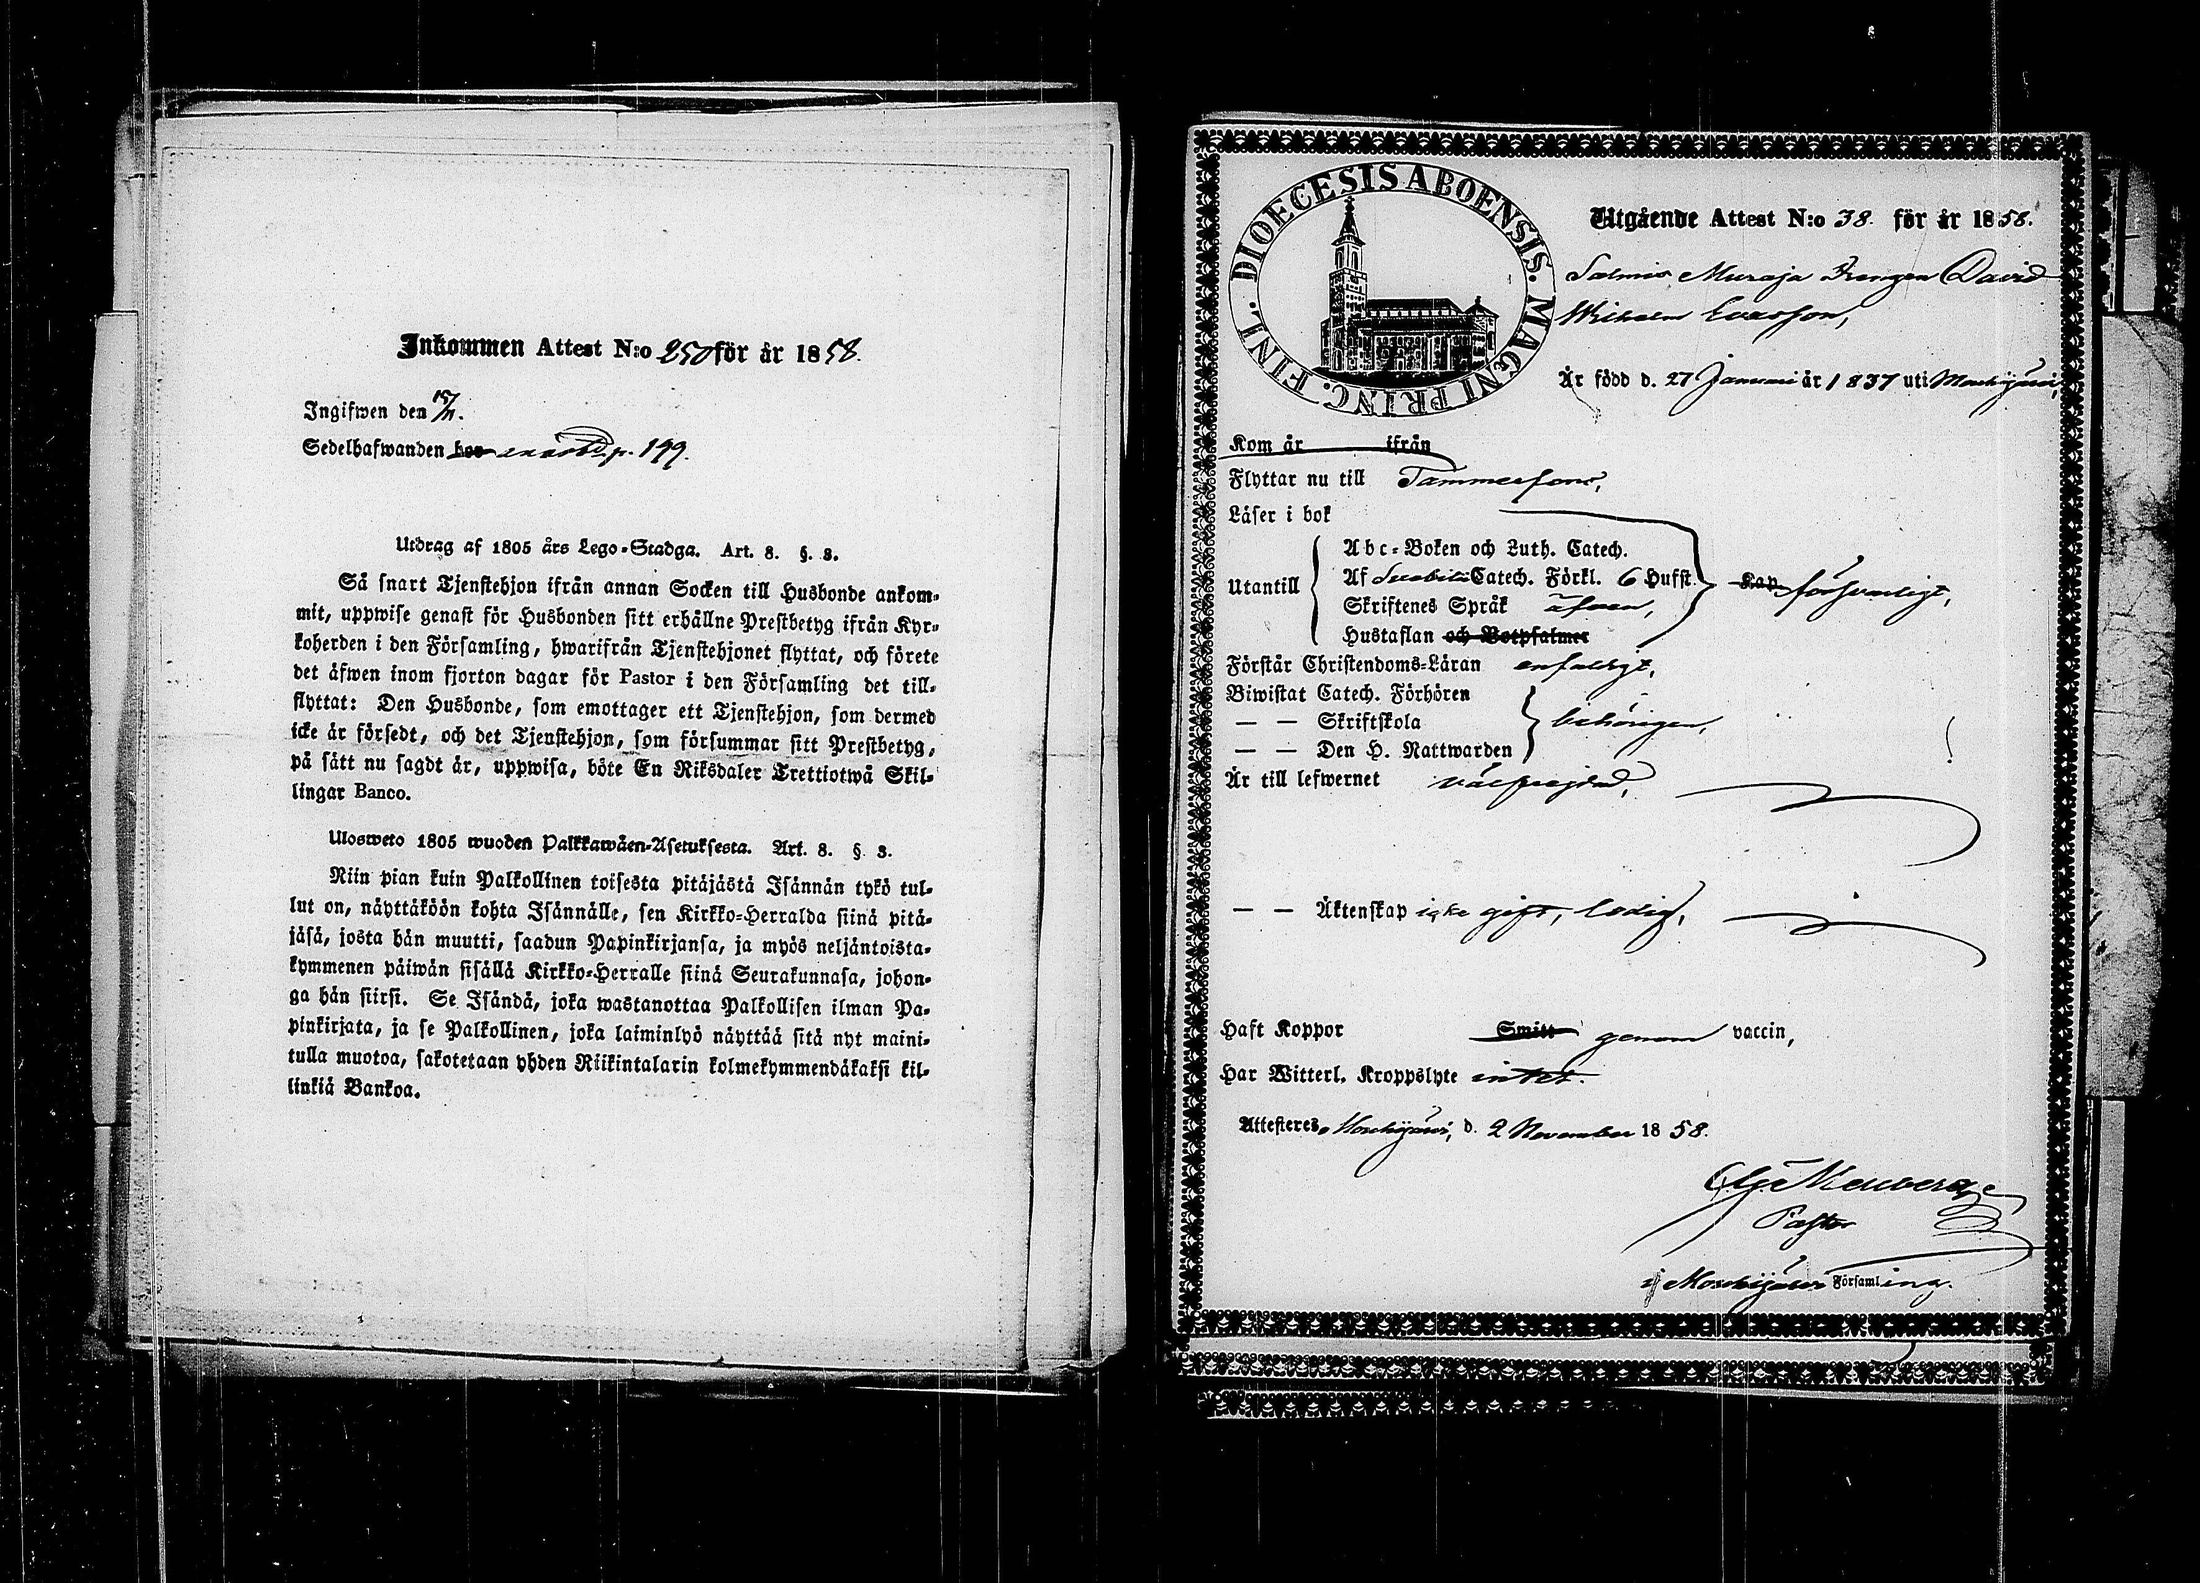 Inkommen Attest N:o 250 för år 1858.
Ingifwen den 15/11.
Sedelhafwanden hos p. 199.
Utdrag af 1805 års Lego-Stadga. Art. 8. §. 3.
Så snart Tjenstehjon ifrån annan Socken till Husbonde ankom-
mit, uppwise genast för Husbonden sitt erhållne Prestbetyg ifrån Kyr-
koherden i den Församling, hwarifrån Tjenstehjonet flyttat, och förete
det äfwen inom fjorton dagar för Pastor i den Församling det till-
flyttat: Den Husbonde, som emottager ett Tjenstehjon, som dermed
icke är försedt, och det Tjenstehjon, som försummar sitt Prestbetyg,
på sätt nu sagdt är, uppwisa, böte En Riksdaler Trettiotwå Skil-
lingar Banco.
Ulosweto 1805 wuoden Palkkawäen-Asetuksesta. Art. 8. §. 3.
Niin pian kuin Palkollinen toisesta pitäjästä Isännän tykö tul-
lut on, näyttäköön kohta Isännälle, sen Kirkko-Herralda siinä pitä-
jäsä, josta hän muutti, saadun Papinkirjansa, ja myös neljäntoista-
kymmenen päiwän sisällä Kirkko-Herralle siinä Seurakunnasa, johon-
ga hän siirsi. Se Isändä, joka wastanottaa Palkollisen ilman Pa-
pinkirjata, ja se Palkollinen, joka laiminlyö näyttää sitä nyt maini-
tulla muotoa, sakotetaan yhden Riikintalarin kolmekymmendäkaksi kil-
linkiä Bankoa.
DIOECESIS ABOENSIS. MAGNI PRINC. FINL.
Utgående Attest N:o 38. för år 1858.
Salmis Muraja Drengen David
Wilhelm Evasson,
Är född d. 27 Januari år 1837 uti Mouhijärvi,
Kom år ifrån
Flyttar nu till Tammerfors,
Läser i bok
Utantill
Abc-Boken och Luth. Catech.
Af Svebilii Catech. Förkl. 6 Hufst. Kap. försvarligt,
Skriftenes Språk äfven,
Hustaflan och Botpsalmer
Förstår Christendoms-Läran enfaldigt,
Biwistat Catech. Förhören
— — Skriftskola behörigen,
— — Den H. Nattwarden
Är till lefwernet välfrejdad,
— — Äktenskap icke gift, ledig,
Haft Koppor Smitt genom vaccin,
Har Witterl. Kroppslyte intet.
Attesteres, Mouhijärvi, d. 2 November 1858.
Pastor
i Mouhijärvi Församling.